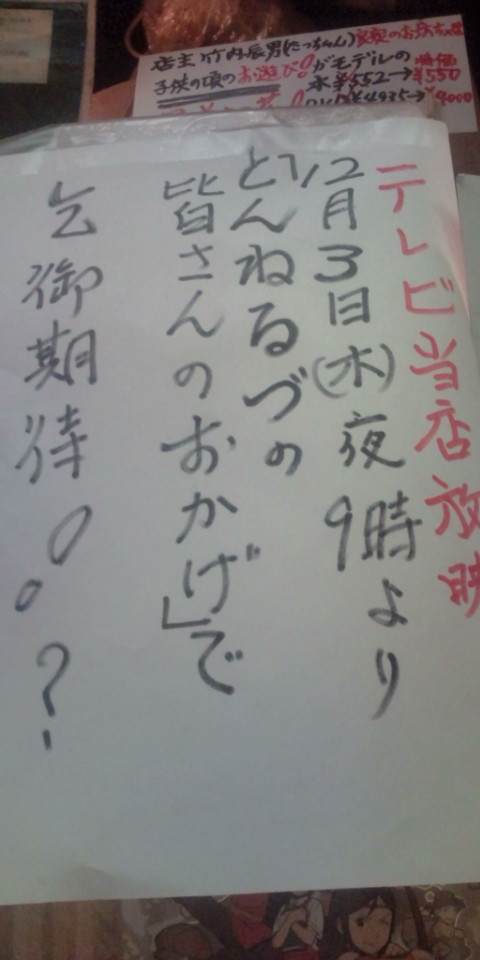 店主 竹内辰男(たっちゃん)
子供の頃のお遊び!がモデルの
本¥552→¥550
特価
テレビ当店放映
12月3日(水)夜9時より
「とんねるづの
皆さんのおかげ」で
乞御期待!?